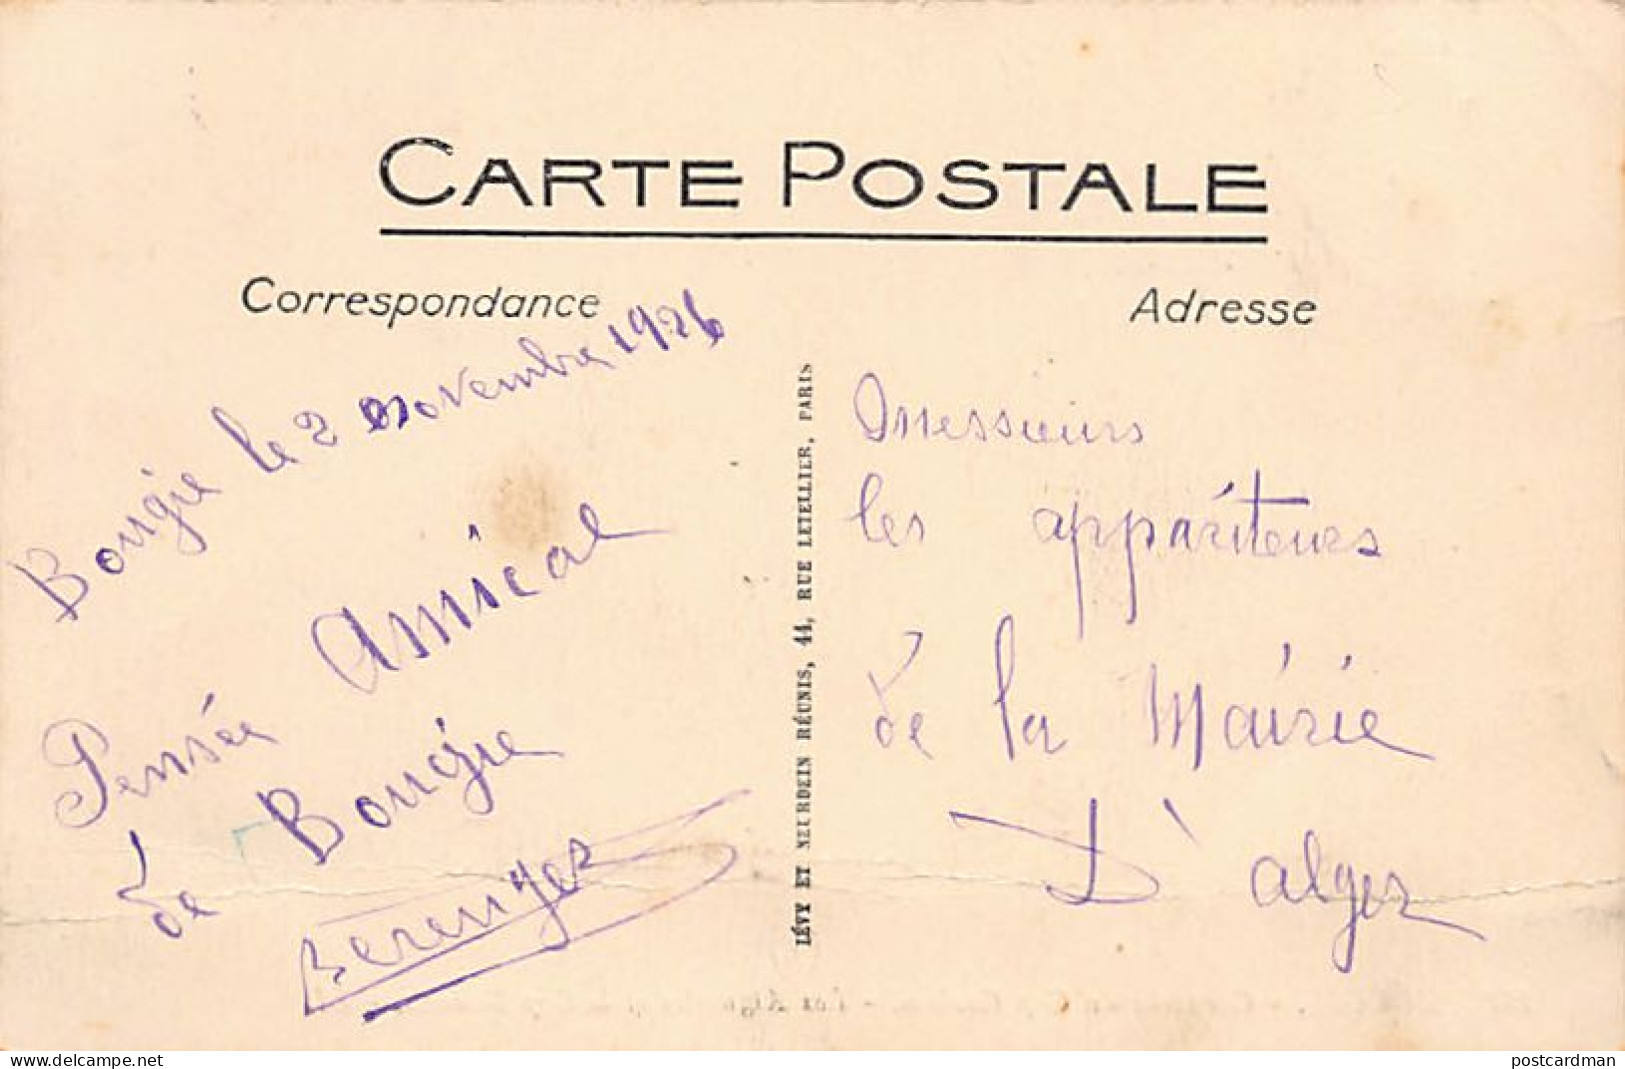 CARTE POSTALE
Correspondance
Adresse
Bougie le 2 Novembre 1926
Pensée Amical
de Bougie
Berenger
LÉVY ET NEURDEIN RÉUNIS, 44, RUE LETELLIER, PARIS
Messieurs
les appariteurs
de la Mairie
D'alger
delcampe.net
postcardman